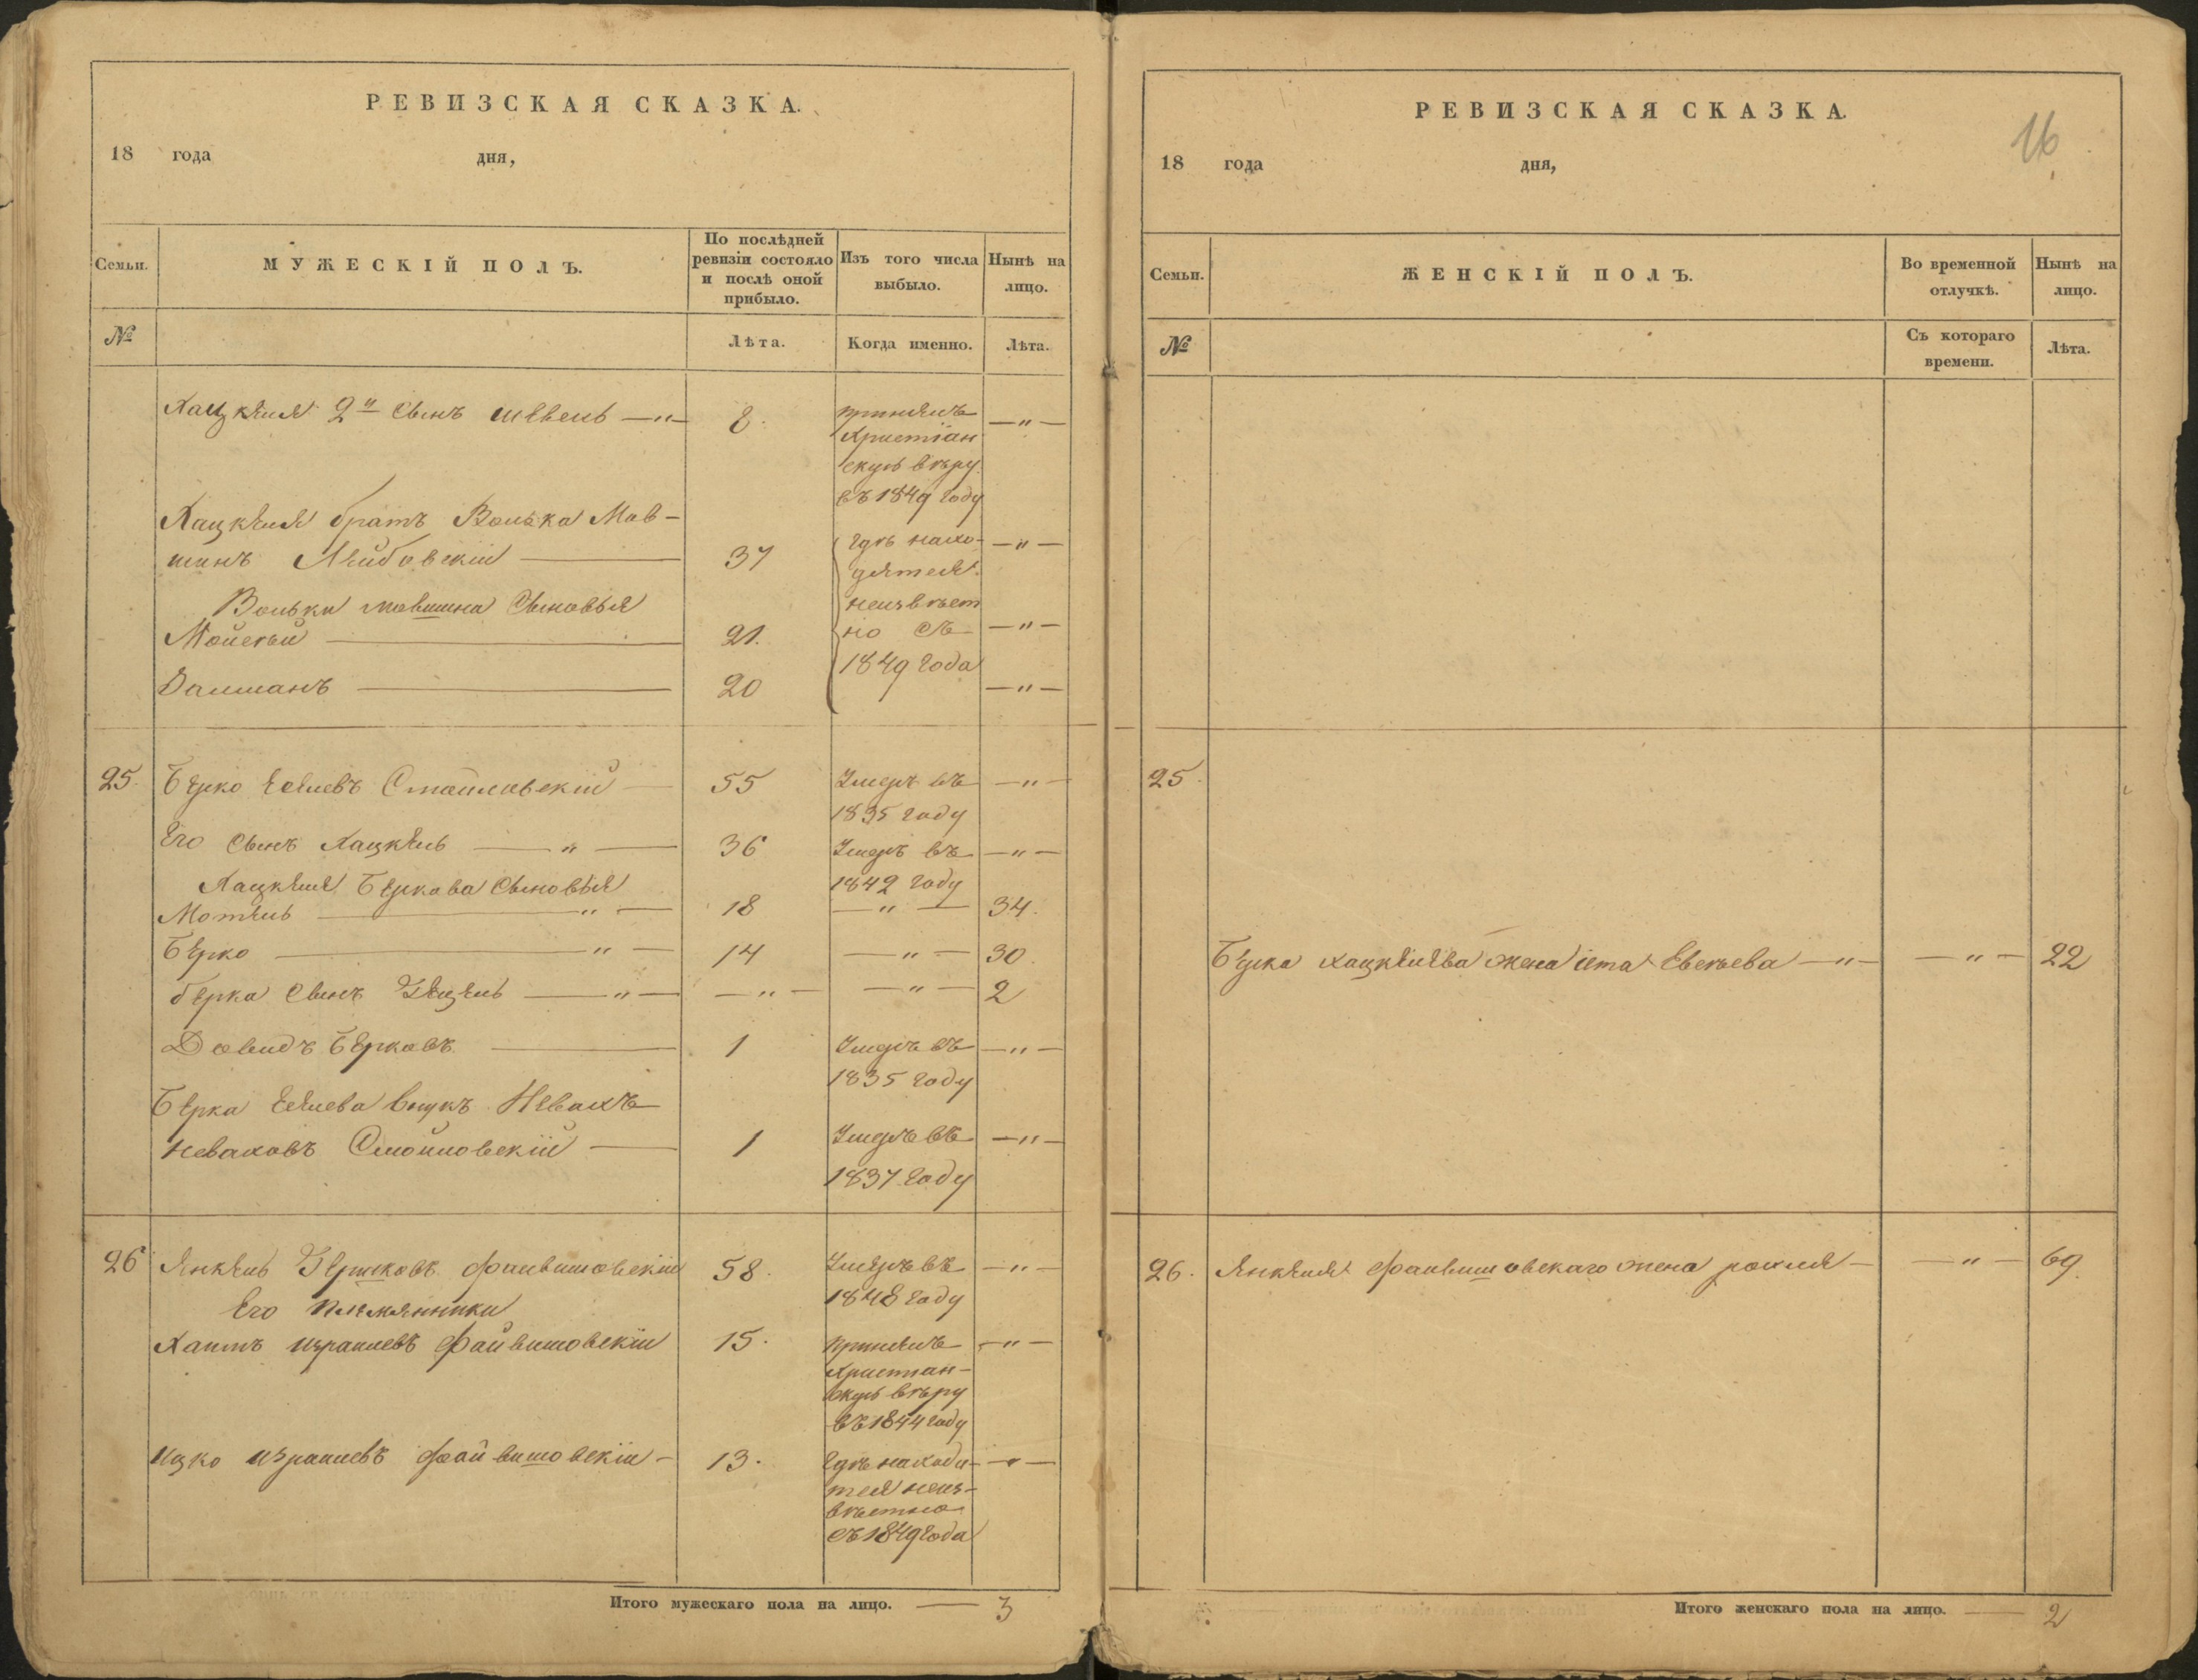 РЕВИЗСКАЯ СКАЗКА.
18 года дня,
Семьи. МУЖЕСКІЙ ПОЛЪ. По послѣдней ревизіи состояло и послѣ оной прибыло. Изъ того числа выбыло. Нынѣ на лицо.
№ Лѣта. Когда именно. Лѣта.
Хацкѣля 2й сынъ —"— 8. принялъ —"—
Христіан
скую вѣру
въ 1849 году
Хацкѣля братъ Волька Мов-
шинъ Лейбовскій — 37 гдѣ нахо- —"—
дятся
Вольки мовшина сыновья неизвѣст
Мойсѣй — 21. но съ —"—
1849 года
Залманъ — 20 —"—
25. Берко Еселевъ — 55 Умеръ въ —"—
1835 году
Его сынъ Хацкѣль —"— 36 Умеръ въ —"—
Хацкѣля Беркова сыновья 1842 году
Мотѣль —"— 18 —"— 34.
Берко —"— 14 —"— 30.
берка сынъ —"— —"— —"— 2
Довидъ Берковъ — 1 Умеръ въ —"—
1835 году
Берка Еселева внукъ Невахъ
Неваховъ — 1 Умеръ въ —"—
1837 году
26 Янкѣль Гершковъ Файвишовскій 58. Умеръ въ —"—
Его племянники 1848 году
Хаимъ израилевъ Файвишовскій 15. принялъ —"—
Христіан-
скую вѣру
въ 1844 году
Ицко израилевъ файвишовскій — 13. гдѣ находи- —"—
тся неиз-
вѣстно
съ 1849 года
Итого мужескаго пола на лицо. — 3
РЕВИЗСКАЯ СКАЗКА.
16
18 года дня,
Семьи. ЖЕНСКІЙ ПОЛЪ. Во временной отлучкѣ. Нынѣ на лицо.
№ Съ котораго времени. Лѣта.
25.
Берка хацкѣлева жена —"— —"— 22
26. Янкѣля Файвишовскаго жена рохля — —"— 69.
Итого женскаго пола на лицо. — 2